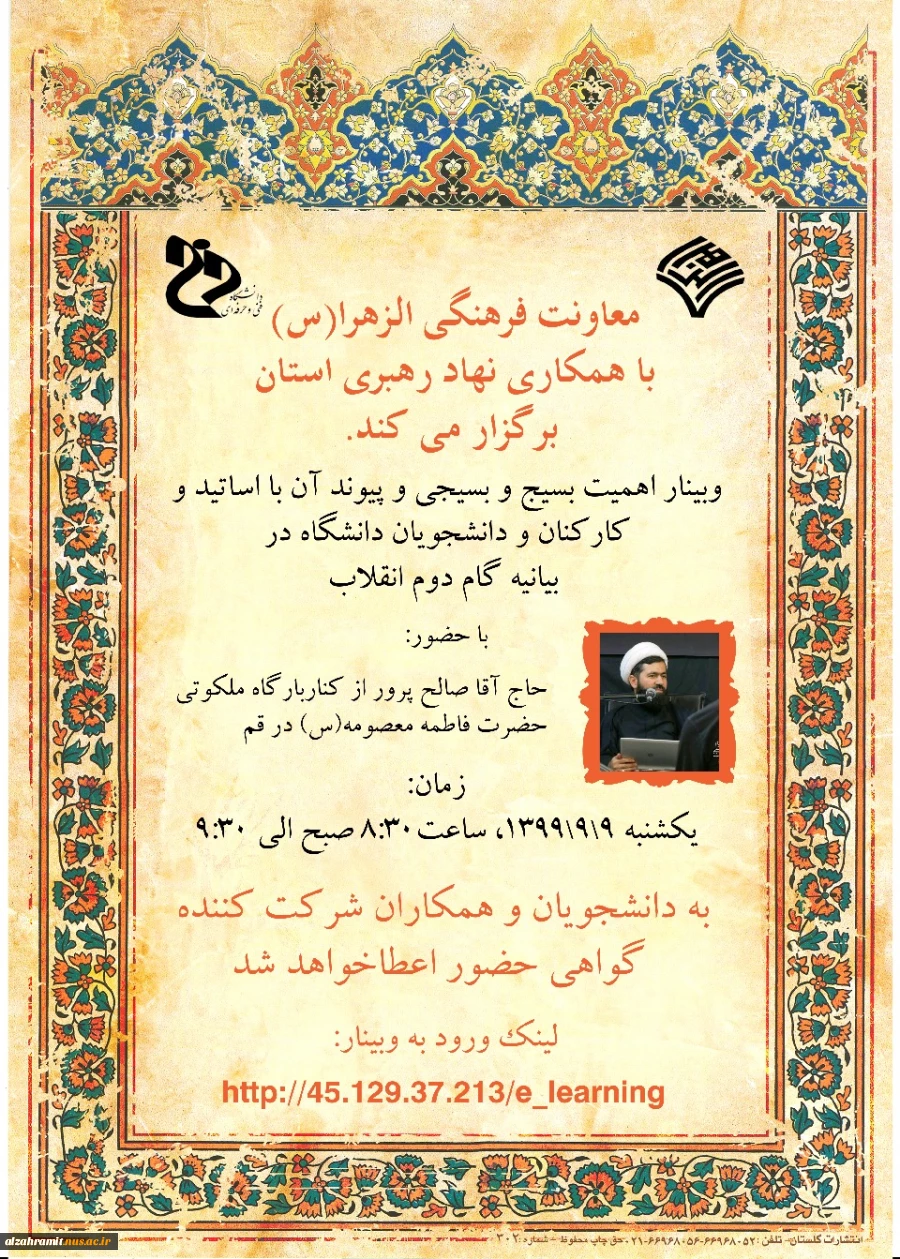 دانشگاه
فنی و حرفه‌ای
معاونت فرهنگی الزهرا(س)
با همکاری نهاد رهبری استان
برگزار می کند.
وبینار اهمیت بسیج و بسیجی و پیوند آن با اساتید و
کارکنان و دانشجویان دانشگاه در
بیانیه گام دوم انقلاب
با حضور:
حاج آقا صالح پرور از کناربارگاه ملکوتی
حضرت فاطمه معصومه(س) در قم
زمان:
یکشنبه ۱۳۹۹\۹\۹، ساعت ۸:۳۰ صبح الی ۹:۳۰
به دانشجویان و همکاران شرکت کننده
گواهی حضور اعطاخواهد شد
لینک ورود به وبینار:
http://45.129.37.213/e_learning
انتشارات گلستان - تلفن: ۶۶۹۶۸۰۵۲-۶۶۹۶۸۰۵۶-۰۲۱ حق چاپ محفوظ - شماره: ۳۰۲
alzahramit.nus.ac.ir